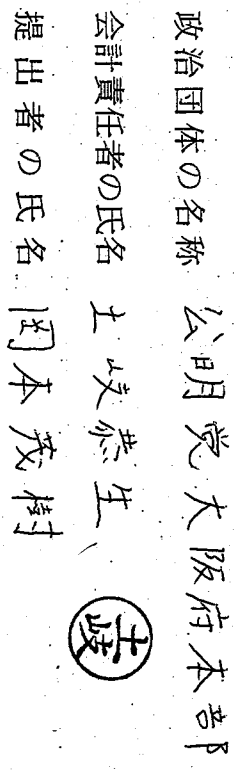 政治団体の名称 公明党大阪府本部
会計責任者の氏名 土岐恭生 土岐
提出者の氏名 岡本茂樹